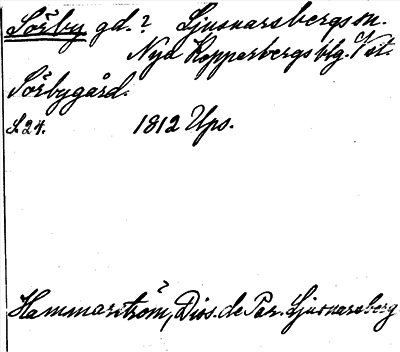 Sörby gd.? Ljusnarsbergs sn.
Nya Kopparbergs blg. Vst.
Sörbygård.
S. 24. 1812 Ups.
Hammarström, Diss. de Par. Ljusnarsberg